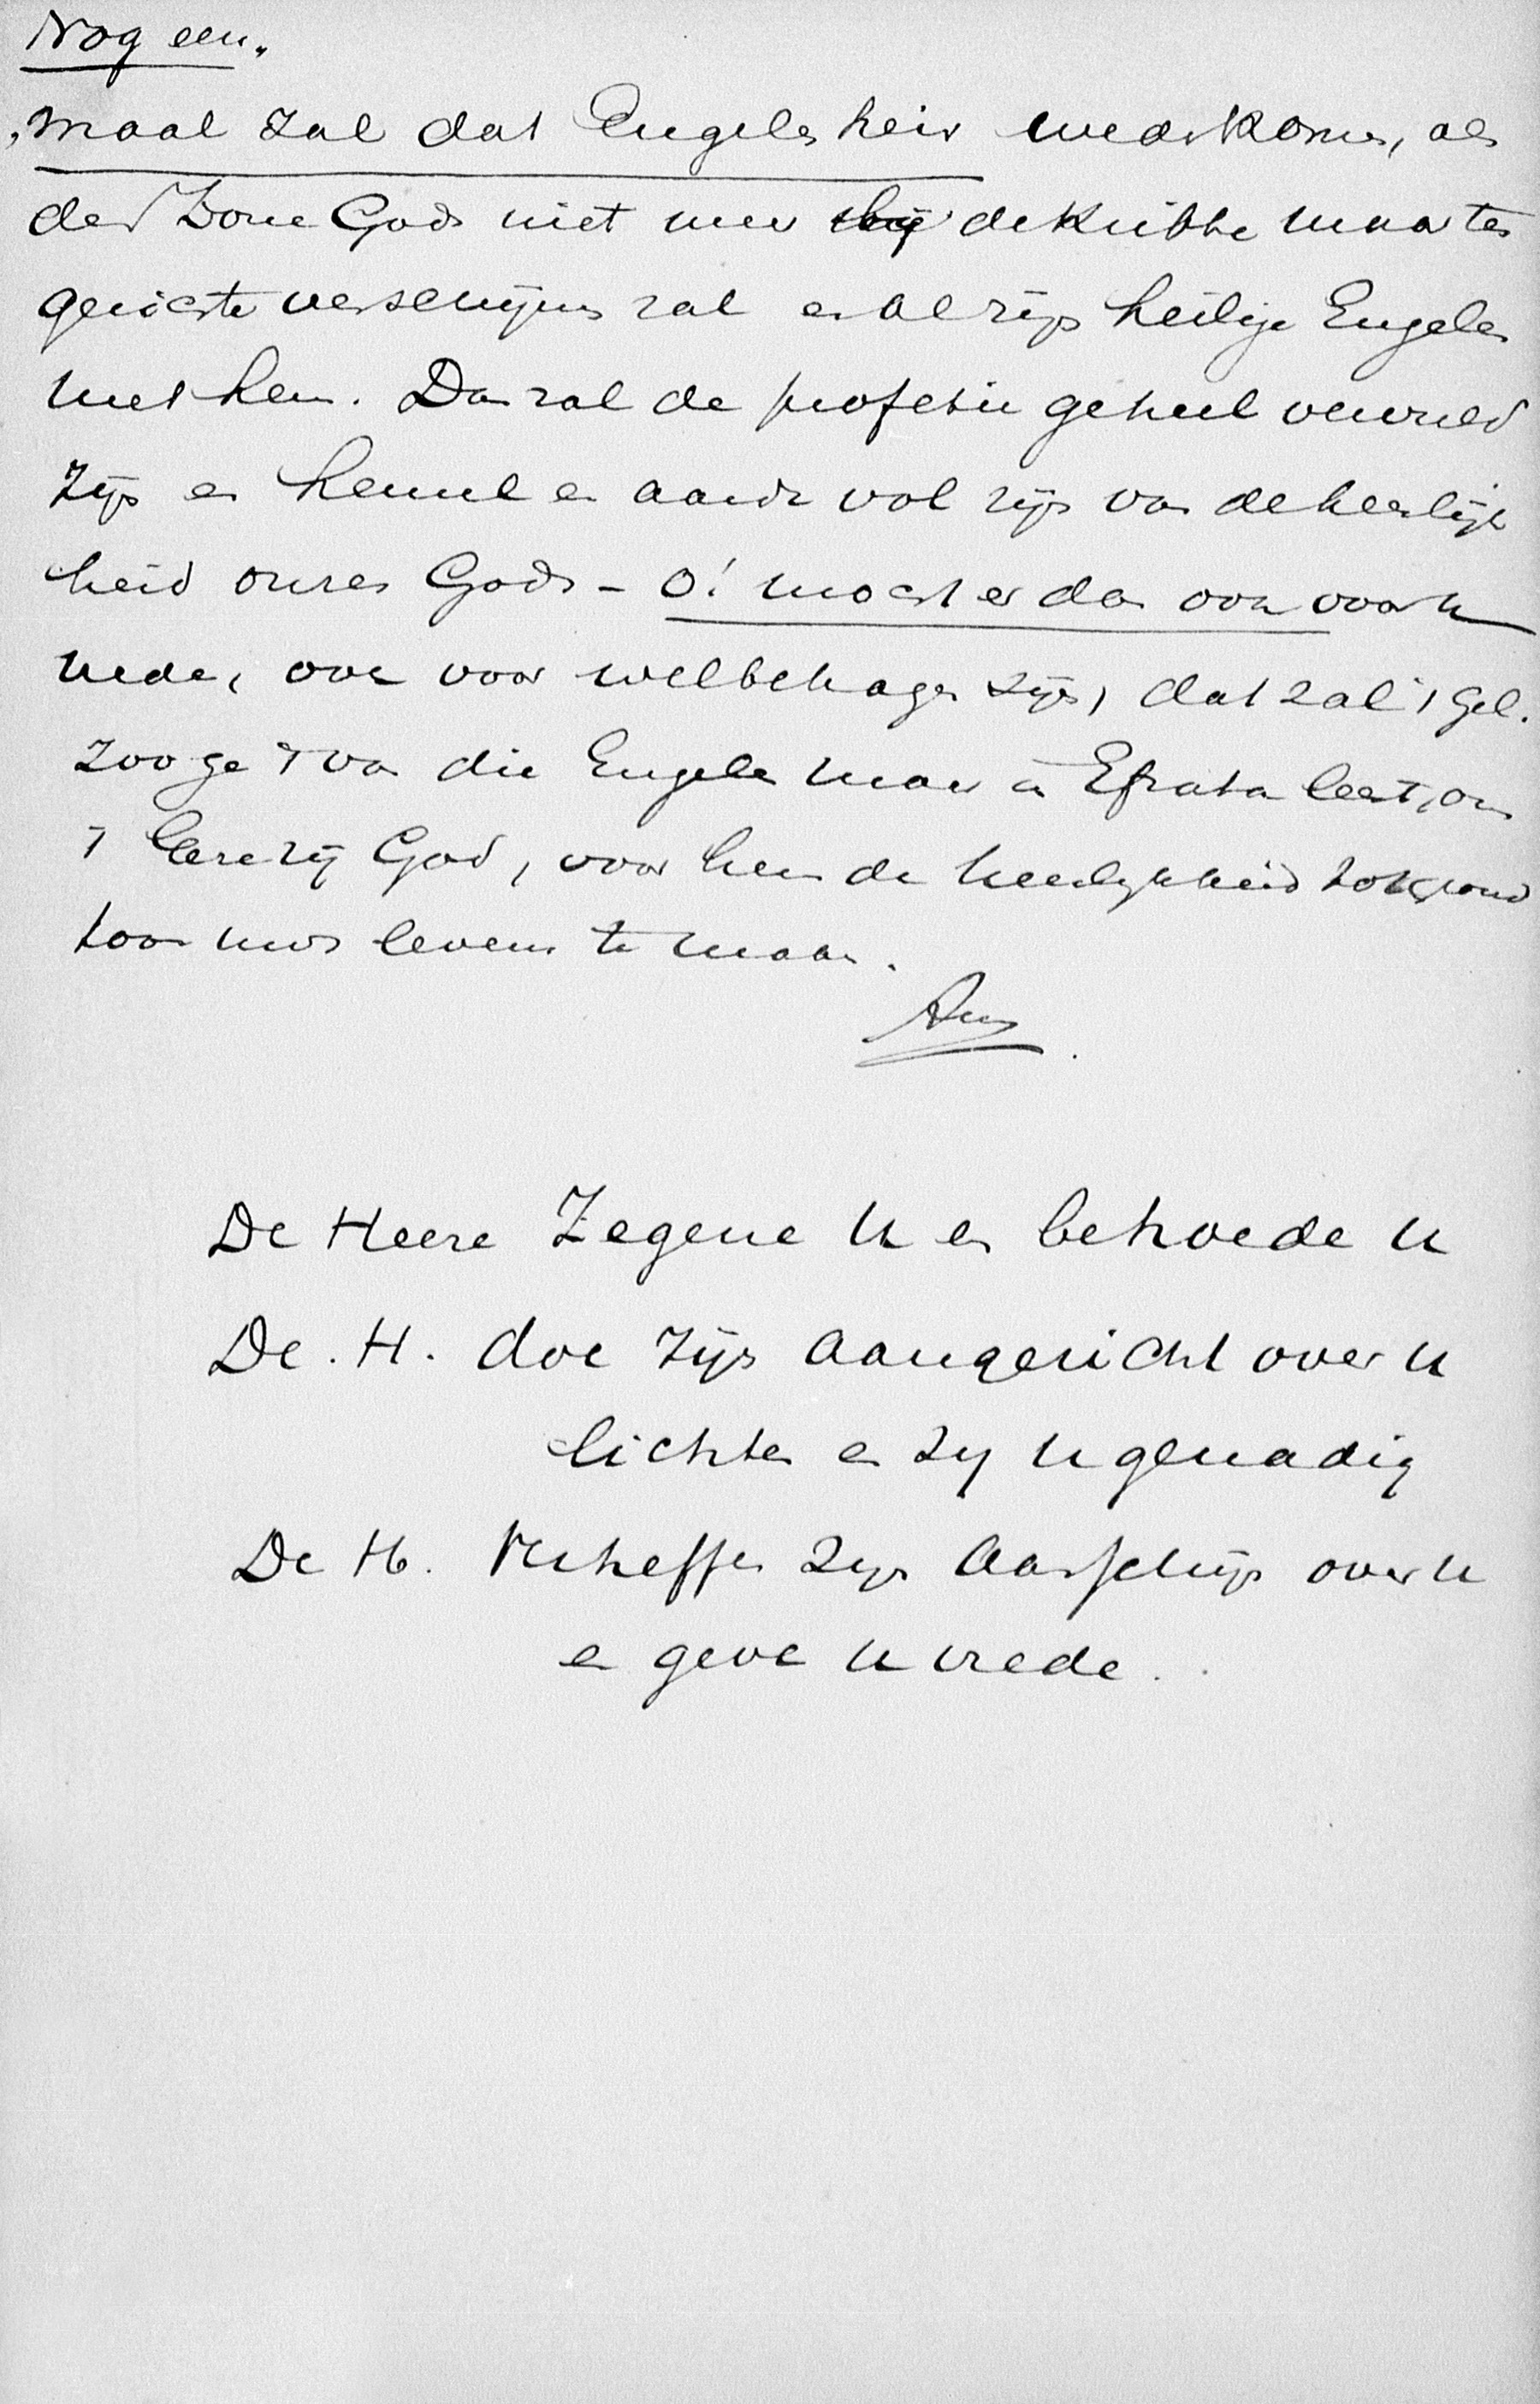 Nog een„
„maal zal dat Engelen heir wederkomen, als
der Zone Gods niet meer bij de Kribbe maar ten
gerichte verschijnen zal en al zijn heilige Engelen
met hem. Dan zal de profesie geheel vervuld
zijn en hemel en aarde vol zijn van de heerlijk
heid onzes Gods – O! mocht er dan ook voor u
vrede, ook voor welbehagen zijn, dat zal 't Gel.
Zoo ge 't van die Engelen maar in Efrata leert, om
't Eere zij God, voor hem de heerlijkheid tot grond
toon uws levens te maken.
Amen.
De Heere Zegene U en behoede U
De. H. doe Zijn aangezicht over U
lichten en zij U genadig
De H. Verheffe Zijn Aanschijn over U
en geve U vrede.